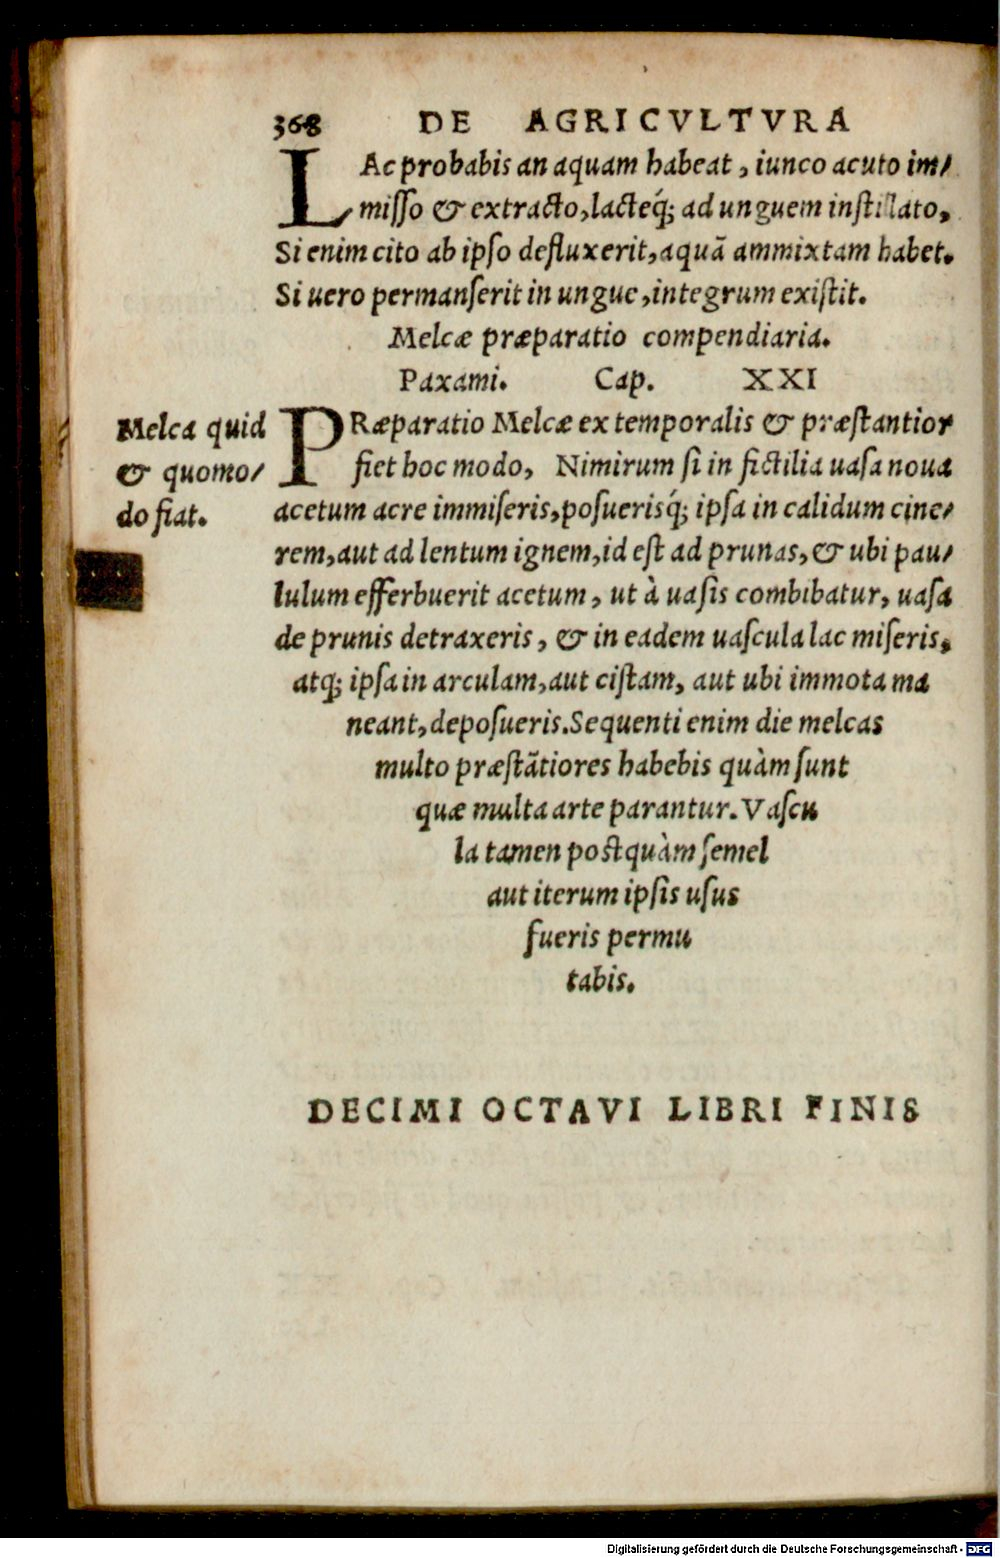 368 DE AGRICVLTVRA
LAc probabis an aquam habeat, iunco acuto im/
misso & extracto, lacteq́; ad unguem instillato,
Si enim cito ab ipso defluxerit, aquã ammixtam habet.
Si uero permanserit in ungue, integrum existit.
Melcæ præparatio compendiaria.
Paxami. Cap. XXI
Melca quid
& quomo/
do fiat.
PRæparatio Melcæ ex temporalis & præstantior
fiet hoc modo, Nimirum si in fictilia uasa noua
acetum acre immiseris, posuerisq́; ipsa in calidum cine/
rem, aut ad lentum ignem, id est ad prunas, & ubi pau/
lulum efferbuerit acetum, ut à uasis combibatur, uasa
de prunis detraxeris, & in eadem uascula lac miseris,
atq; ipsa in arculam, aut cistam, aut ubi immota ma
neant, deposueris. Sequenti enim die melcas
multo præstãtiores habebis quàm sunt
quæ multa arte parantur. Vascu
la tamen postquàm semel
aut iterum ipsis usus
fueris permu
tabis.
DECIMI OCTAVI LIBRI FINIS
Digitalisierung gefördert durch die Deutsche Forschungsgemeinschaft - DFG